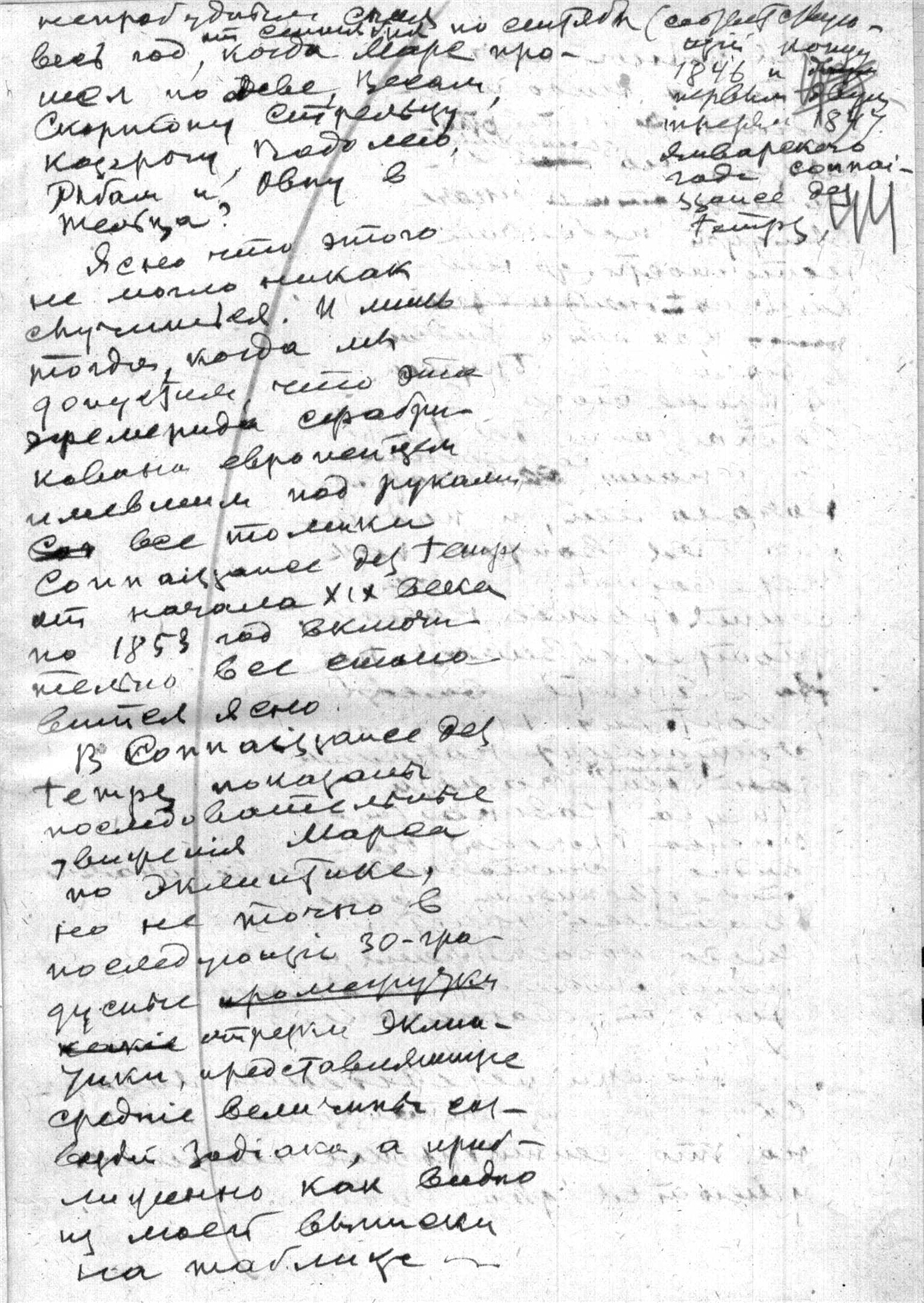 непробудным сном
весь год, от сентября по сентябрь (соответствую-
когда Марс про-
шел по Деве, Весам,
Скорпиону Стрельцу,
Козерогу, Водолею,
Рыбам и, Овну в
Тельца?
щий концу
1846 и
первым
1847
январского
года Connai-
ssance des
temps)
Ясно что этого
не могло никак
случиться! И лишь
тогда, когда мы
допустим что эта
эфемерида сфабри-
кована европейцем
имевшим под руками
все томики
Connaissance des temps
от начала XIX века
по 1853 год включи-
тельно все стано-
вится ясно.
В Connaissance des
temps показаны
последовательные
движения Марса
по эклиптике,
но не точно в
последующие 30-гра-
дусные промежутки
какие отрезки эклип-
тики, представляющие
средние величины соз-
вездий Зодиака, а приб-
лиженно как видно
из моей выписки
на таблице